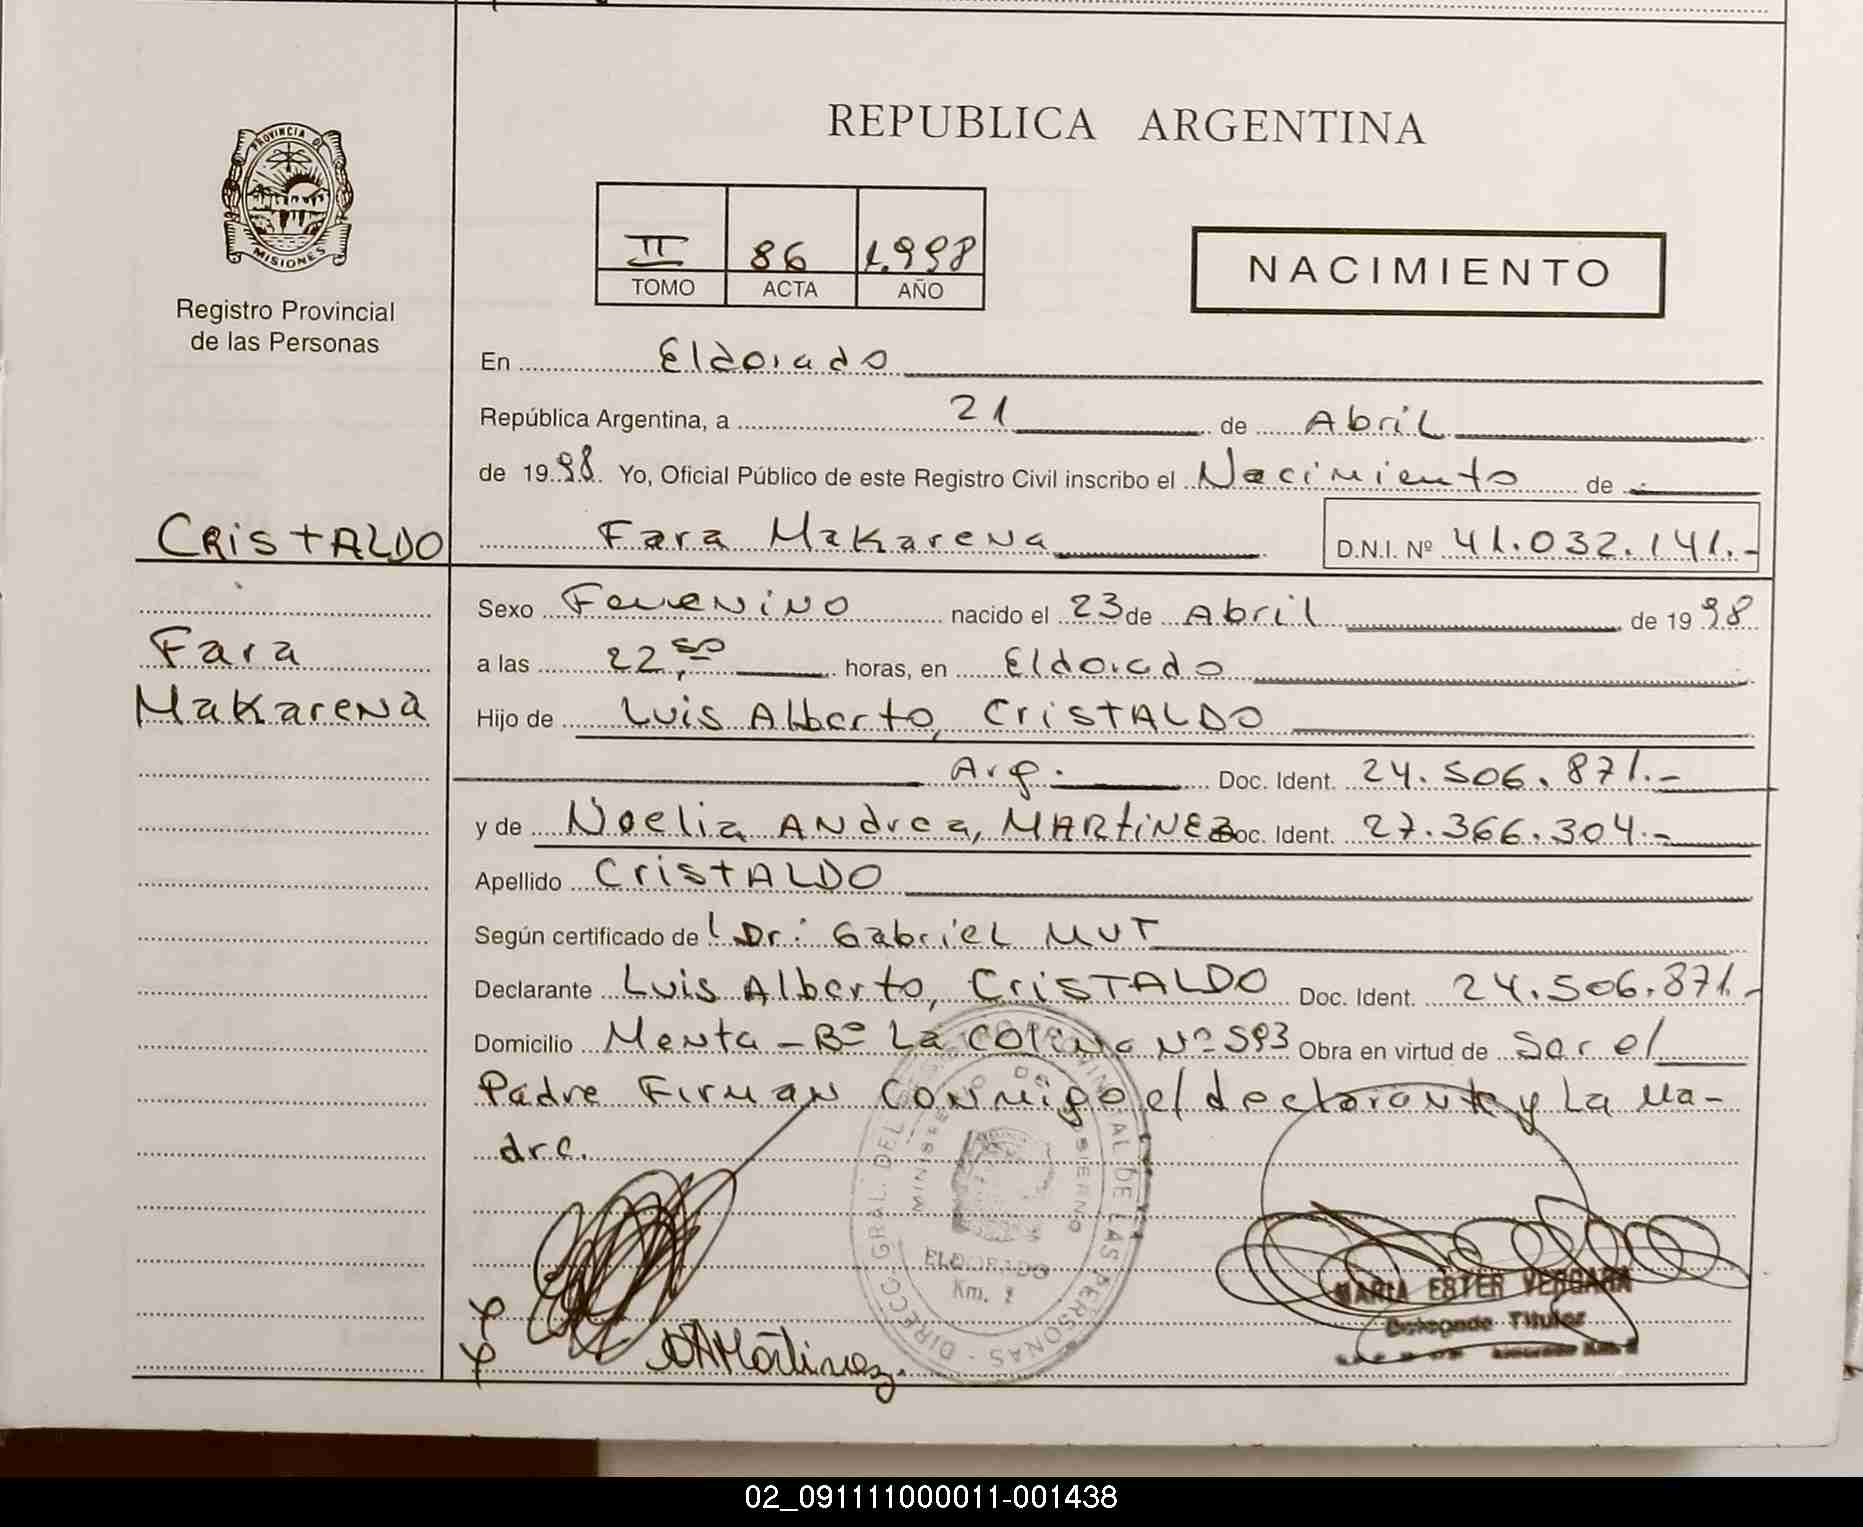 REPUBLICA ARGENTINA
PROVINCIA DE
MISIONES
Registro Provincial
de las Personas
II 86 1.998
TOMO ACTA AÑO
NACIMIENTO
En Eldorado
República Argentina, a 21 de Abril
de 1998. Yo, Oficial Público de este Registro Civil inscribo el Nacimiento de
CRISTALDO Fara Makarena D.N.I. Nº 41.032.141.-
Sexo Femenino nacido el 23 de Abril de 1998
Fara
a las 22,50 horas, en Eldorado
Makarena
Hijo de Luis Alberto, CRISTALDO
Arg. Doc. Ident. 24.506.871.-
y de Noelia Andrea, MARTINEZ Doc. Ident. 27.366.304.-
Apellido CRISTALDO
Según certificado de Dr: Gabriel MUT
Declarante Luis Alberto, CRISTALDO Doc. Ident. 24.506.871.-
Domicilio Menta - Bº La Colina Nº 593 Obra en virtud de Ser el
Padre Firman Conmigo el declarante y La Ma-
dre.
ELDORADO
Km. 2
MARIA ESTER VERGARA
Delegada Titular
NAMartinez.
02_091111000011-001438